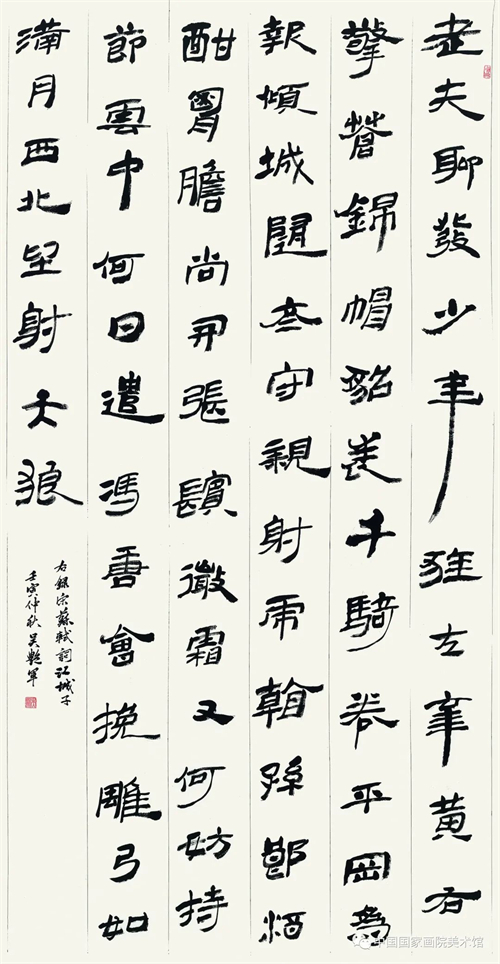 老夫聊發少年狂左牽黃右
擎蒼錦帽貂裘千騎卷平岡為
報傾城隨太守親射虎看孫郎酒
酣胷膽尚開張鬢微霜又何妨持
節雲中何日遣馮唐會挽雕弓如
滿月西北望射天狼
右錄宋蘇軾詞江城子
壬寅仲秋吳艷軍
中国国家画院美术馆